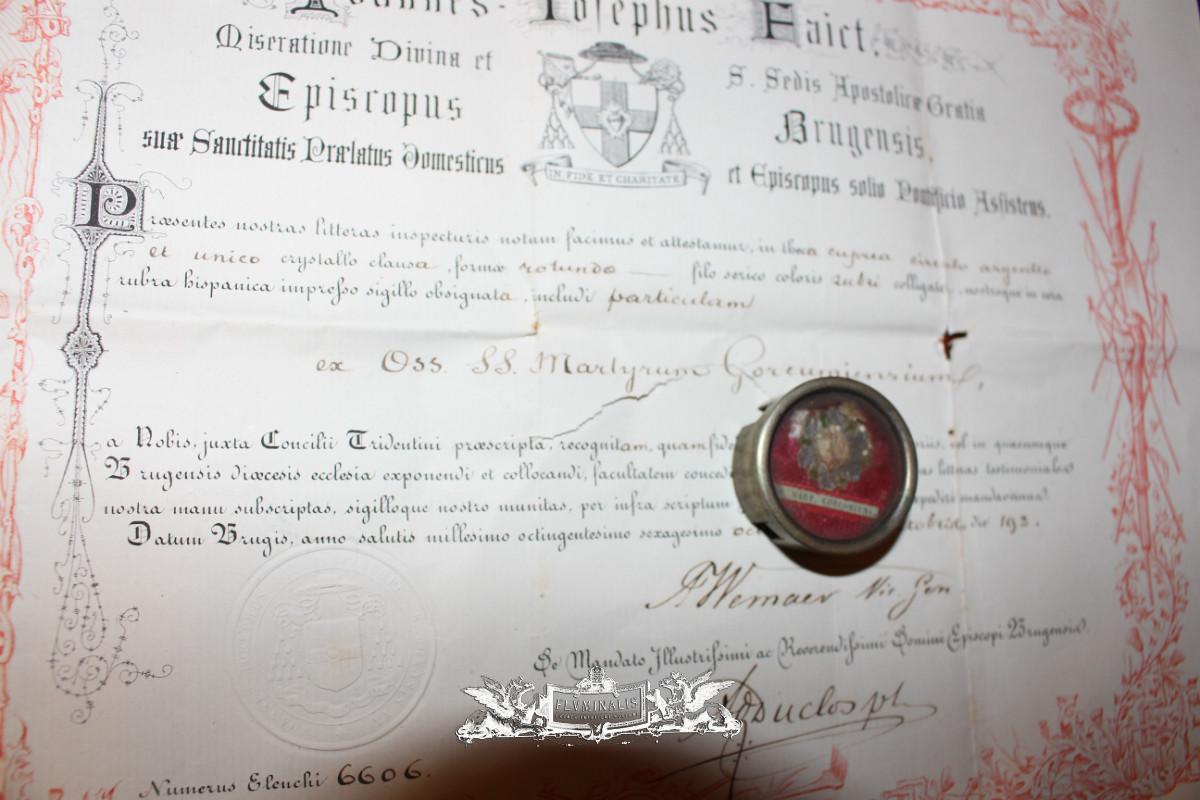 Joannes-Josephus Faict,
Miseratione Divina et
S. Sedis Apostolicæ Gratia
Episcopus
Brugensis,
suæ Sanctitatis Prælatus Domesticus
et Episcopus solio Pontificio Assistens.
IN FIDE ET CHARITATE
Præsentes nostras litteras inspecturis notum facimus et attestamur, in theca cuprea circulo argenteo
et unico crystallo clausa, formæ rotundæ — filo serico coloris rubri colligata, nostroque in cera
rubra hispanica impresso sigillo obsignata, includi particulam
ex Oss. SS. Martyrum Gorcumiensium,
a Nobis, juxta Concilii Tridentini præscripta, recognitam, quam vel in quacumque
Brugensis diœcesis ecclesia exponendi et collocandi, facultatem litteras testimoniales
nostra manu subscriptas, sigilloque nostro munitas, per infra scriptum expediri mandavimus.
Datum Brugis, anno salutis millesimo octingentesimo sexagesimo die 19a.
MART. GORCOMIENS.
Vic. Gen
De Mandato Illustrissimi ac Reverendissimi Domini Episcopi Brugensis.
Duclos
FLVMINALIS
Numerus Elenchi 6606.